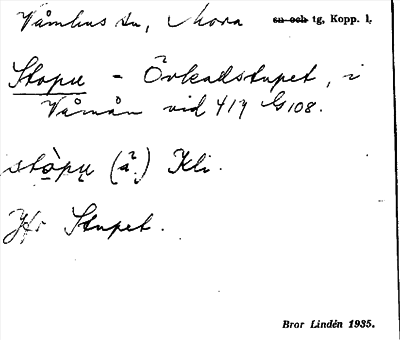 Våmhus sn, Mora sn och tg, Kopp. l.
Stopu - Örkadstupet, i
Våmån vid 417 G 108.
stòpu (å?) Kli.
Jfr Stupet.
Bror Lindén 1935.